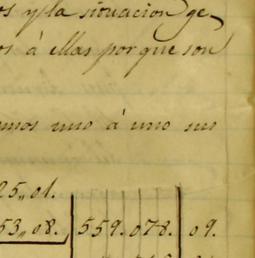 os y la situacion ge
os á ellas porque son
emos uno á uno sus
25,,01.
53,,08. 559.078. 09.